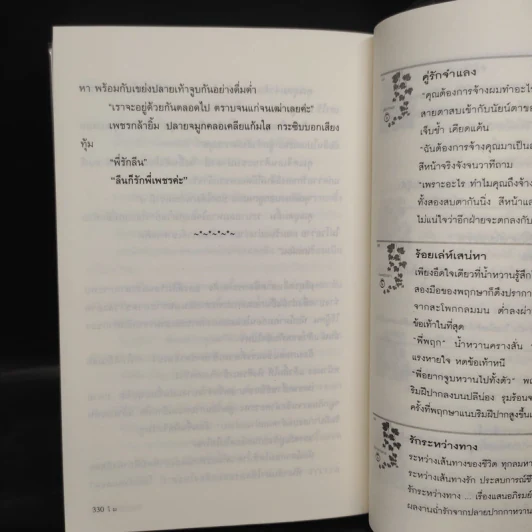 หา พร้อมกับเขย่งปลายเท้าจูบกันอย่างดื่มด่ำ
"เราจะอยู่ด้วยกันตลอดไป ตราบจนแก่จนเฒ่าเลยค่ะ"
เพชรกล้ายิ้ม ปลายจมูกคลอเคลียแก้มใส กระซิบบอกเสียง
ทุ้ม
"พี่รักลีน"
"ลีนก็รักพี่เพชรค่ะ"
~*~*~*~*~
330
คู่รักจำแลง
"คุณต้องการจ้างผมทำอะไร
สายตาสบเข้ากับนัยน์ตาของ
เจ็บช้ำ เคียดแค้น
"ฉันต้องการจ้างคุณมาเป็น
สีหน้าจริงจังจนวาทีถาม
"เพราะอะไร ทำไมคุณถึงจ้าง
ทั้งสองสบตากันนิ่ง สีหน้าแล
ไม่แน่ใจว่าอีกฝ่ายจะตกลงกับ
ร้อยเล่ห์เสน่หา
เพียงอึดใจเดียวที่น้ำหวานรู้สึก
สองมือของพฤกษาก็ดึงปราการ
จากสะโพกกลมมน ต่ำลงผ่า
ข้อเท้าในที่สุด
"พี่พฤก" น้ำหวานครางสั่น
แรงหายใจ หดข้อเท้าหนี
"พี่อยากจูบหวานไปทั้งตัว" พฤ
ริมฝีปากลงบนปลีน่อง รุมร้อน
ครั้งที่พฤกษาแนบริมฝีปากสูงขึ้น
รักระหว่างทาง
ระหว่างเส้นทางของชีวิต ทุกลมหา
ระหว่างเส้นทางรัก ประสบการณ์ชี
รักระหว่างทาง ... เรื่องแสนอภิรมย์
ผลงานฉ่ำรักจากปลายปากกาหวาน